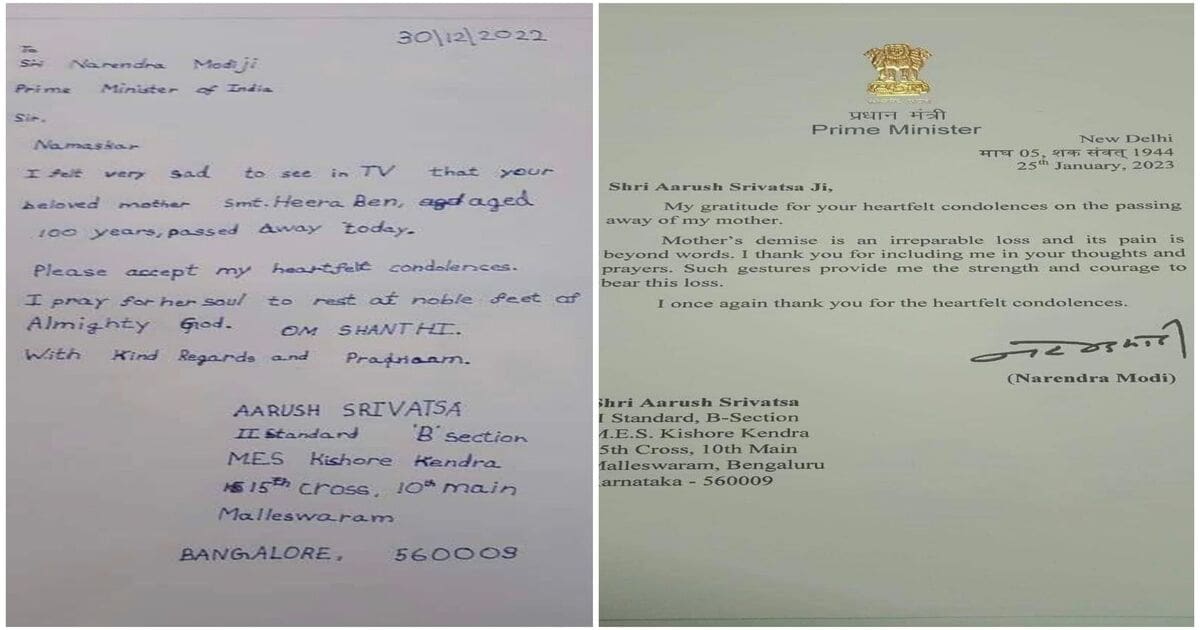 30/12/2022
To
Sri Narendra Modiji
Prime Minister of India
Sir.
Namaskar
I felt very sad to see in TV that your
beloved mother Smt. Heera Ben, aged
100 years, passed away today.
Please accept my heartfelt condolences.
I pray for her soul to rest at noble feet of
Almighty God. OM SHANTHI.
With Kind Regards and Pranaam.
AARUSH SRIVATSA
II Standard 'B' section
MES Kishore Kendra
15th cross, 10th main
Malleswaram
BANGALORE, 560009
प्रधान मंत्री
Prime Minister
New Delhi
माघ 05, शक संवत् 1944
25th January, 2023
Shri Aarush Srivatsa Ji,
My gratitude for your heartfelt condolences on the passing
away of my mother.
Mother's demise is an irreparable loss and its pain is
beyond words. I thank you for including me in your thoughts and
prayers. Such gestures provide me the strength and courage to
bear this loss.
I once again thank you for the heartfelt condolences.
(Narendra Modi)
Shri Aarush Srivatsa
I Standard, B-Section
M.E.S. Kishore Kendra
5th Cross, 10th Main
Malleswaram, Bengaluru
arnataka - 560009